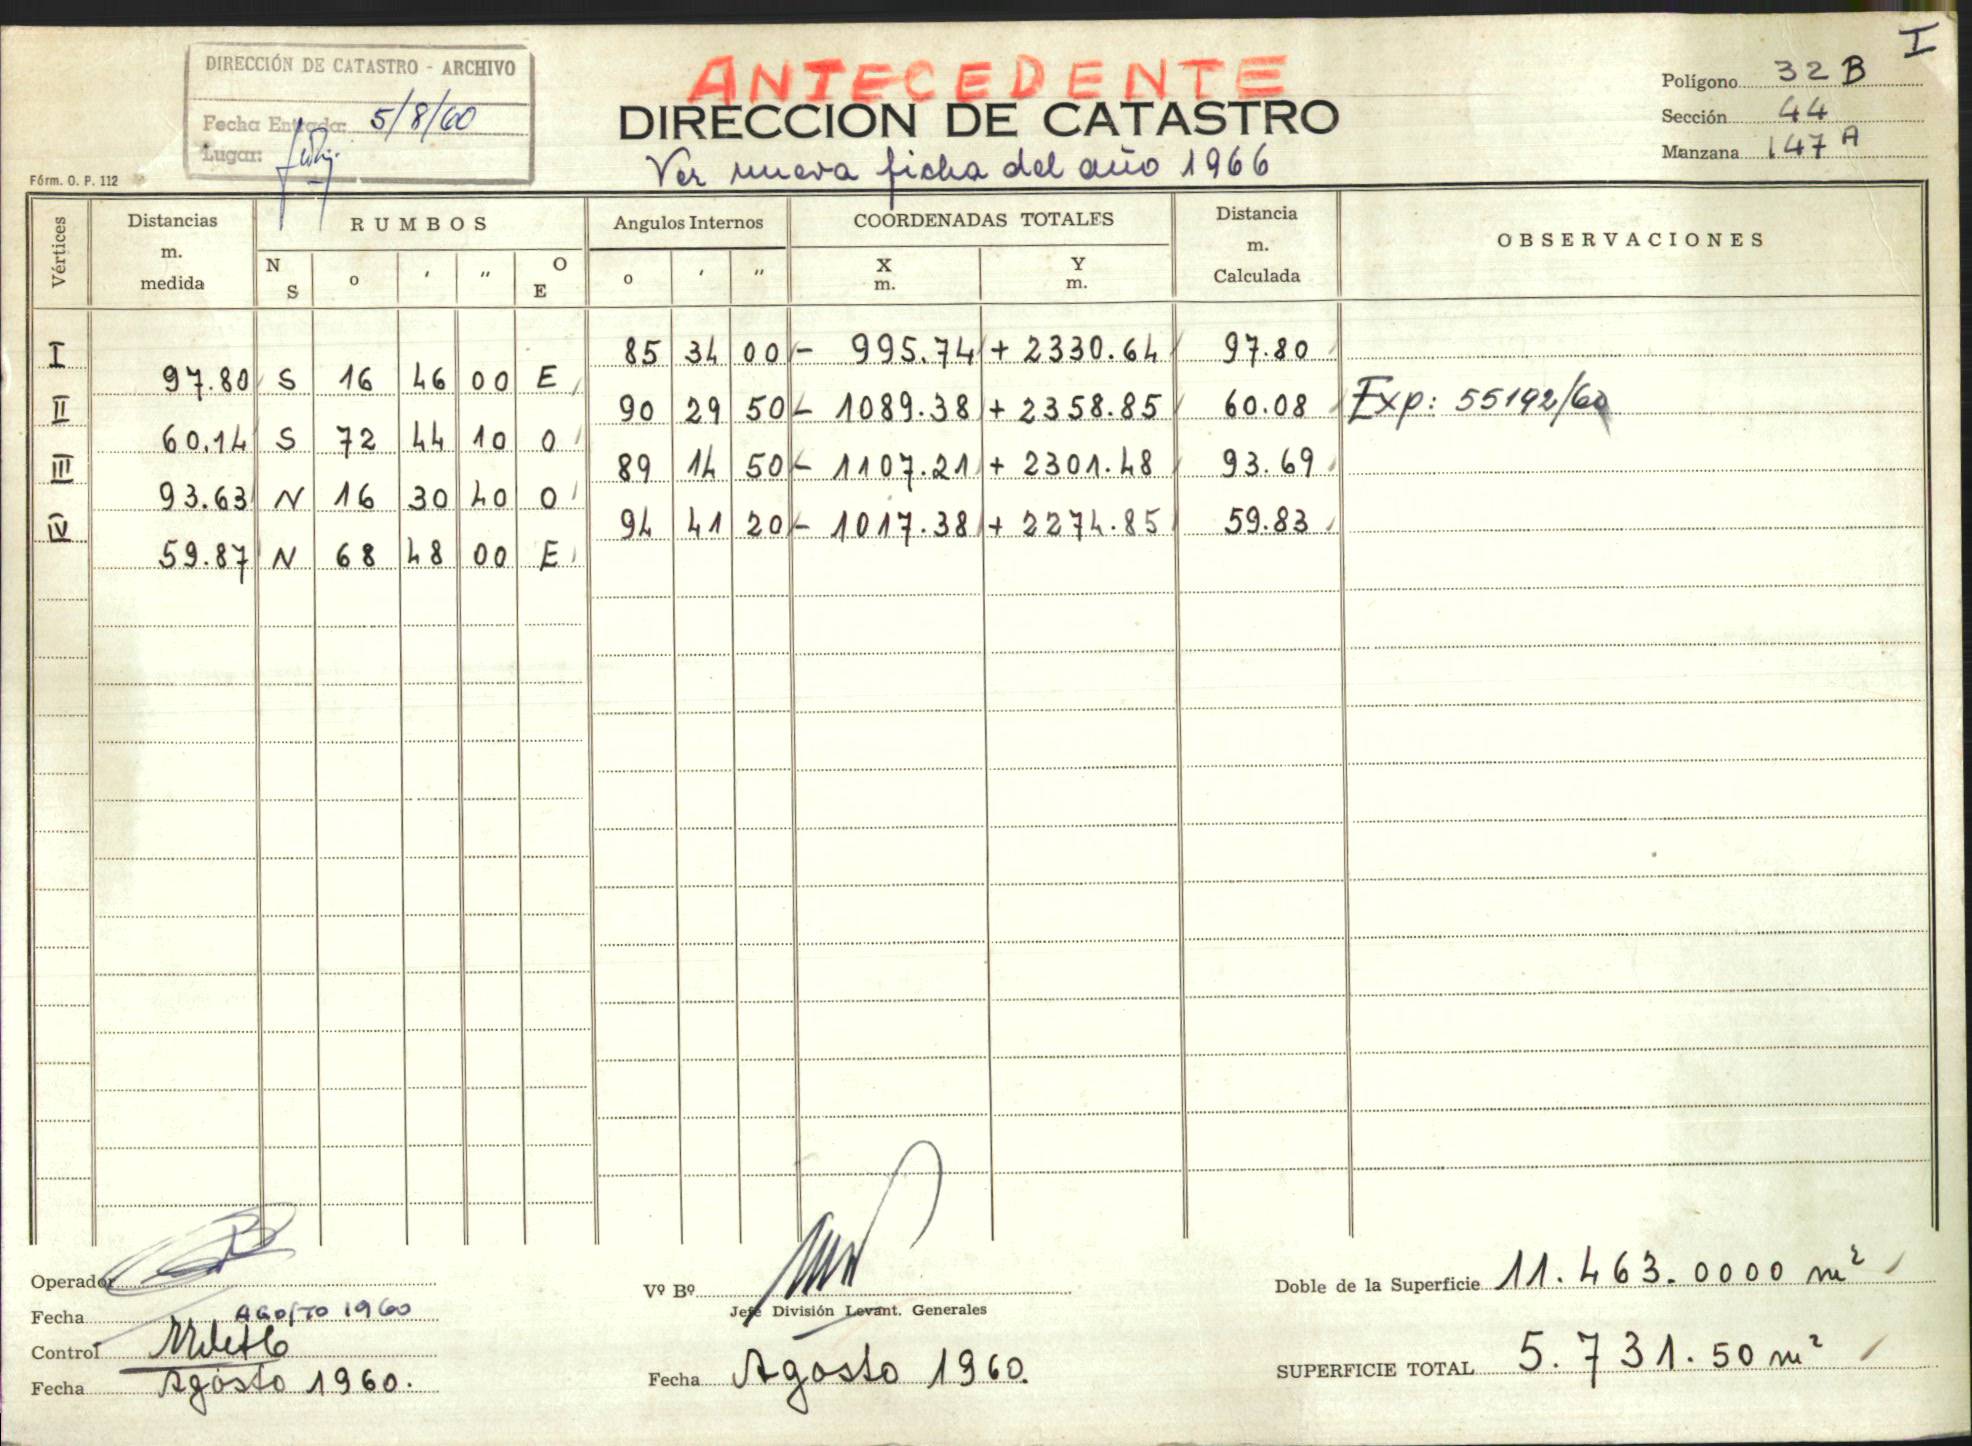 I
DIRECCIÓN DE CATASTRO - ARCHIVO
Fecha Entrada: 5/8/60
Lugar:
ANTECEDENTE
DIRECCION DE CATASTRO
Ver nueva ficha del año 1966
Polígono 32 B
Sección 44
Manzana 147 A
Fórm. O. P. 112
Vértices
Distancias m. medida
RUMBOS
N S ° ' " O E
Angulos Internos
° ' "
COORDENADAS TOTALES
X m. Y m.
Distancia m. Calculada
OBSERVACIONES
I 85 34 00 - 995.74 + 2330.64 97.80
97.80 S 16 46 00 E
II 90 29 50 - 1089.38 + 2358.85 60.08 Exp: 55192/60
60.14 S 72 44 10 O
III 89 14 50 - 1107.21 + 2301.48 93.69
93.63 N 16 30 40 O
IV 94 41 20 - 1017.38 + 2274.85 59.83
59.87 N 68 48 00 E
Operador
Fecha AGOSTO 1960
Control
Fecha Agosto 1960.
Vº Bº
Jefe División Levant. Generales
Fecha Agosto 1960.
Doble de la Superficie 11.463.0000 m²
SUPERFICIE TOTAL 5.731.50 m²